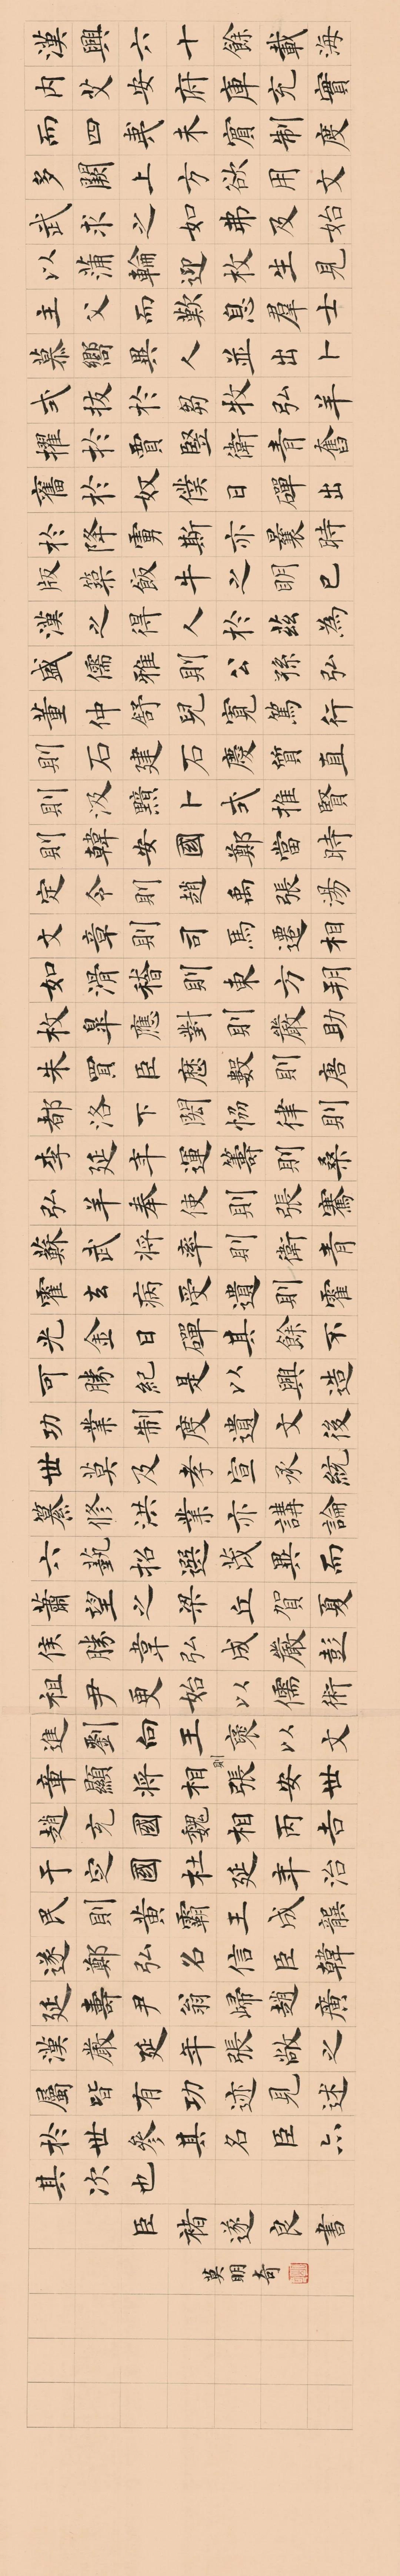 漢興六十餘載海
内艾安府庫充實
而四夷未賓制度
多闕上方欲用文
武求之如弗及始
以蒲輪迎枚生見
主父而歎息羣士
慕嚮異人並出卜
式拔於芻牧弘羊
擢於賈豎衛青奮
舊於奴僕日磾出
於降虜斯亦曩時
版築飯牛之明已
漢之得人於茲為
盛儒雅則公孫弘
董仲舒兒寬篤行
則石建石慶質直
則汲黯卜式推賢
則韓安國鄭當時
定令則趙禹張湯
文章則司馬遷相
如滑稽則東方朔
枚皋應對則嚴助
朱買臣歷數則唐
都洛下閎協律則
李延年運籌則桑
弘羊奉使則張騫
蘇武將率則衛青
霍去病受遺則霍
光金日磾其餘不
可勝紀是以興造
功業制度遺文後
世莫及孝宣承統
纂脩洪業亦講論
六藝招選茂異而
蕭望之梁丘賀夏
侯勝韋弘成嚴彭
祖尹更始以儒術
進劉向王褒以文
章顯將相則張安世
趙充國魏相丙吉
于定國杜延年治
民則黃霸王成龔
遂鄭弘名信臣韓
延壽尹翁歸趙廣
漢嚴延年張敞之
屬皆有功迹見述
於世參其名臣亦
其次也
臣褚遂良書
莫明奇